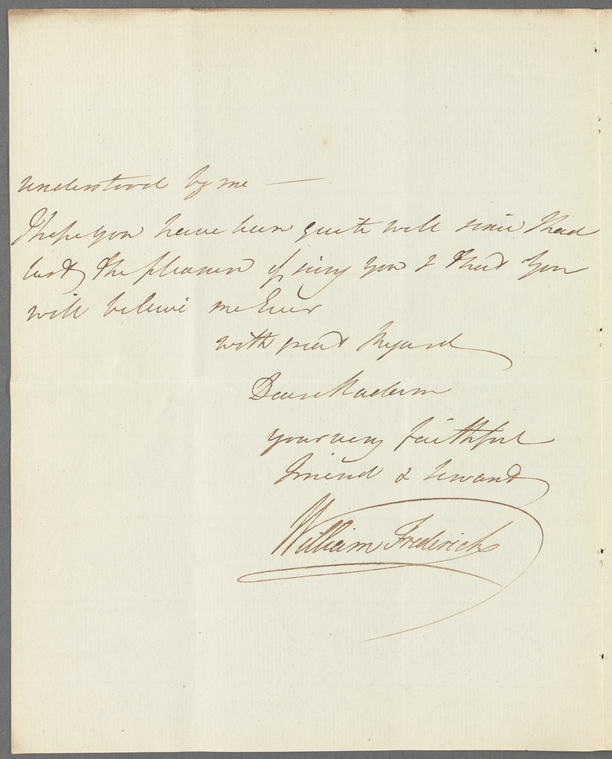 understood by me —
I hope you have been quite well since I had
last the pleasure of seeing you & that you
will believe me Ever
with great Regard
Dear Madam
your very faithful
friend & Servant
William Frederick